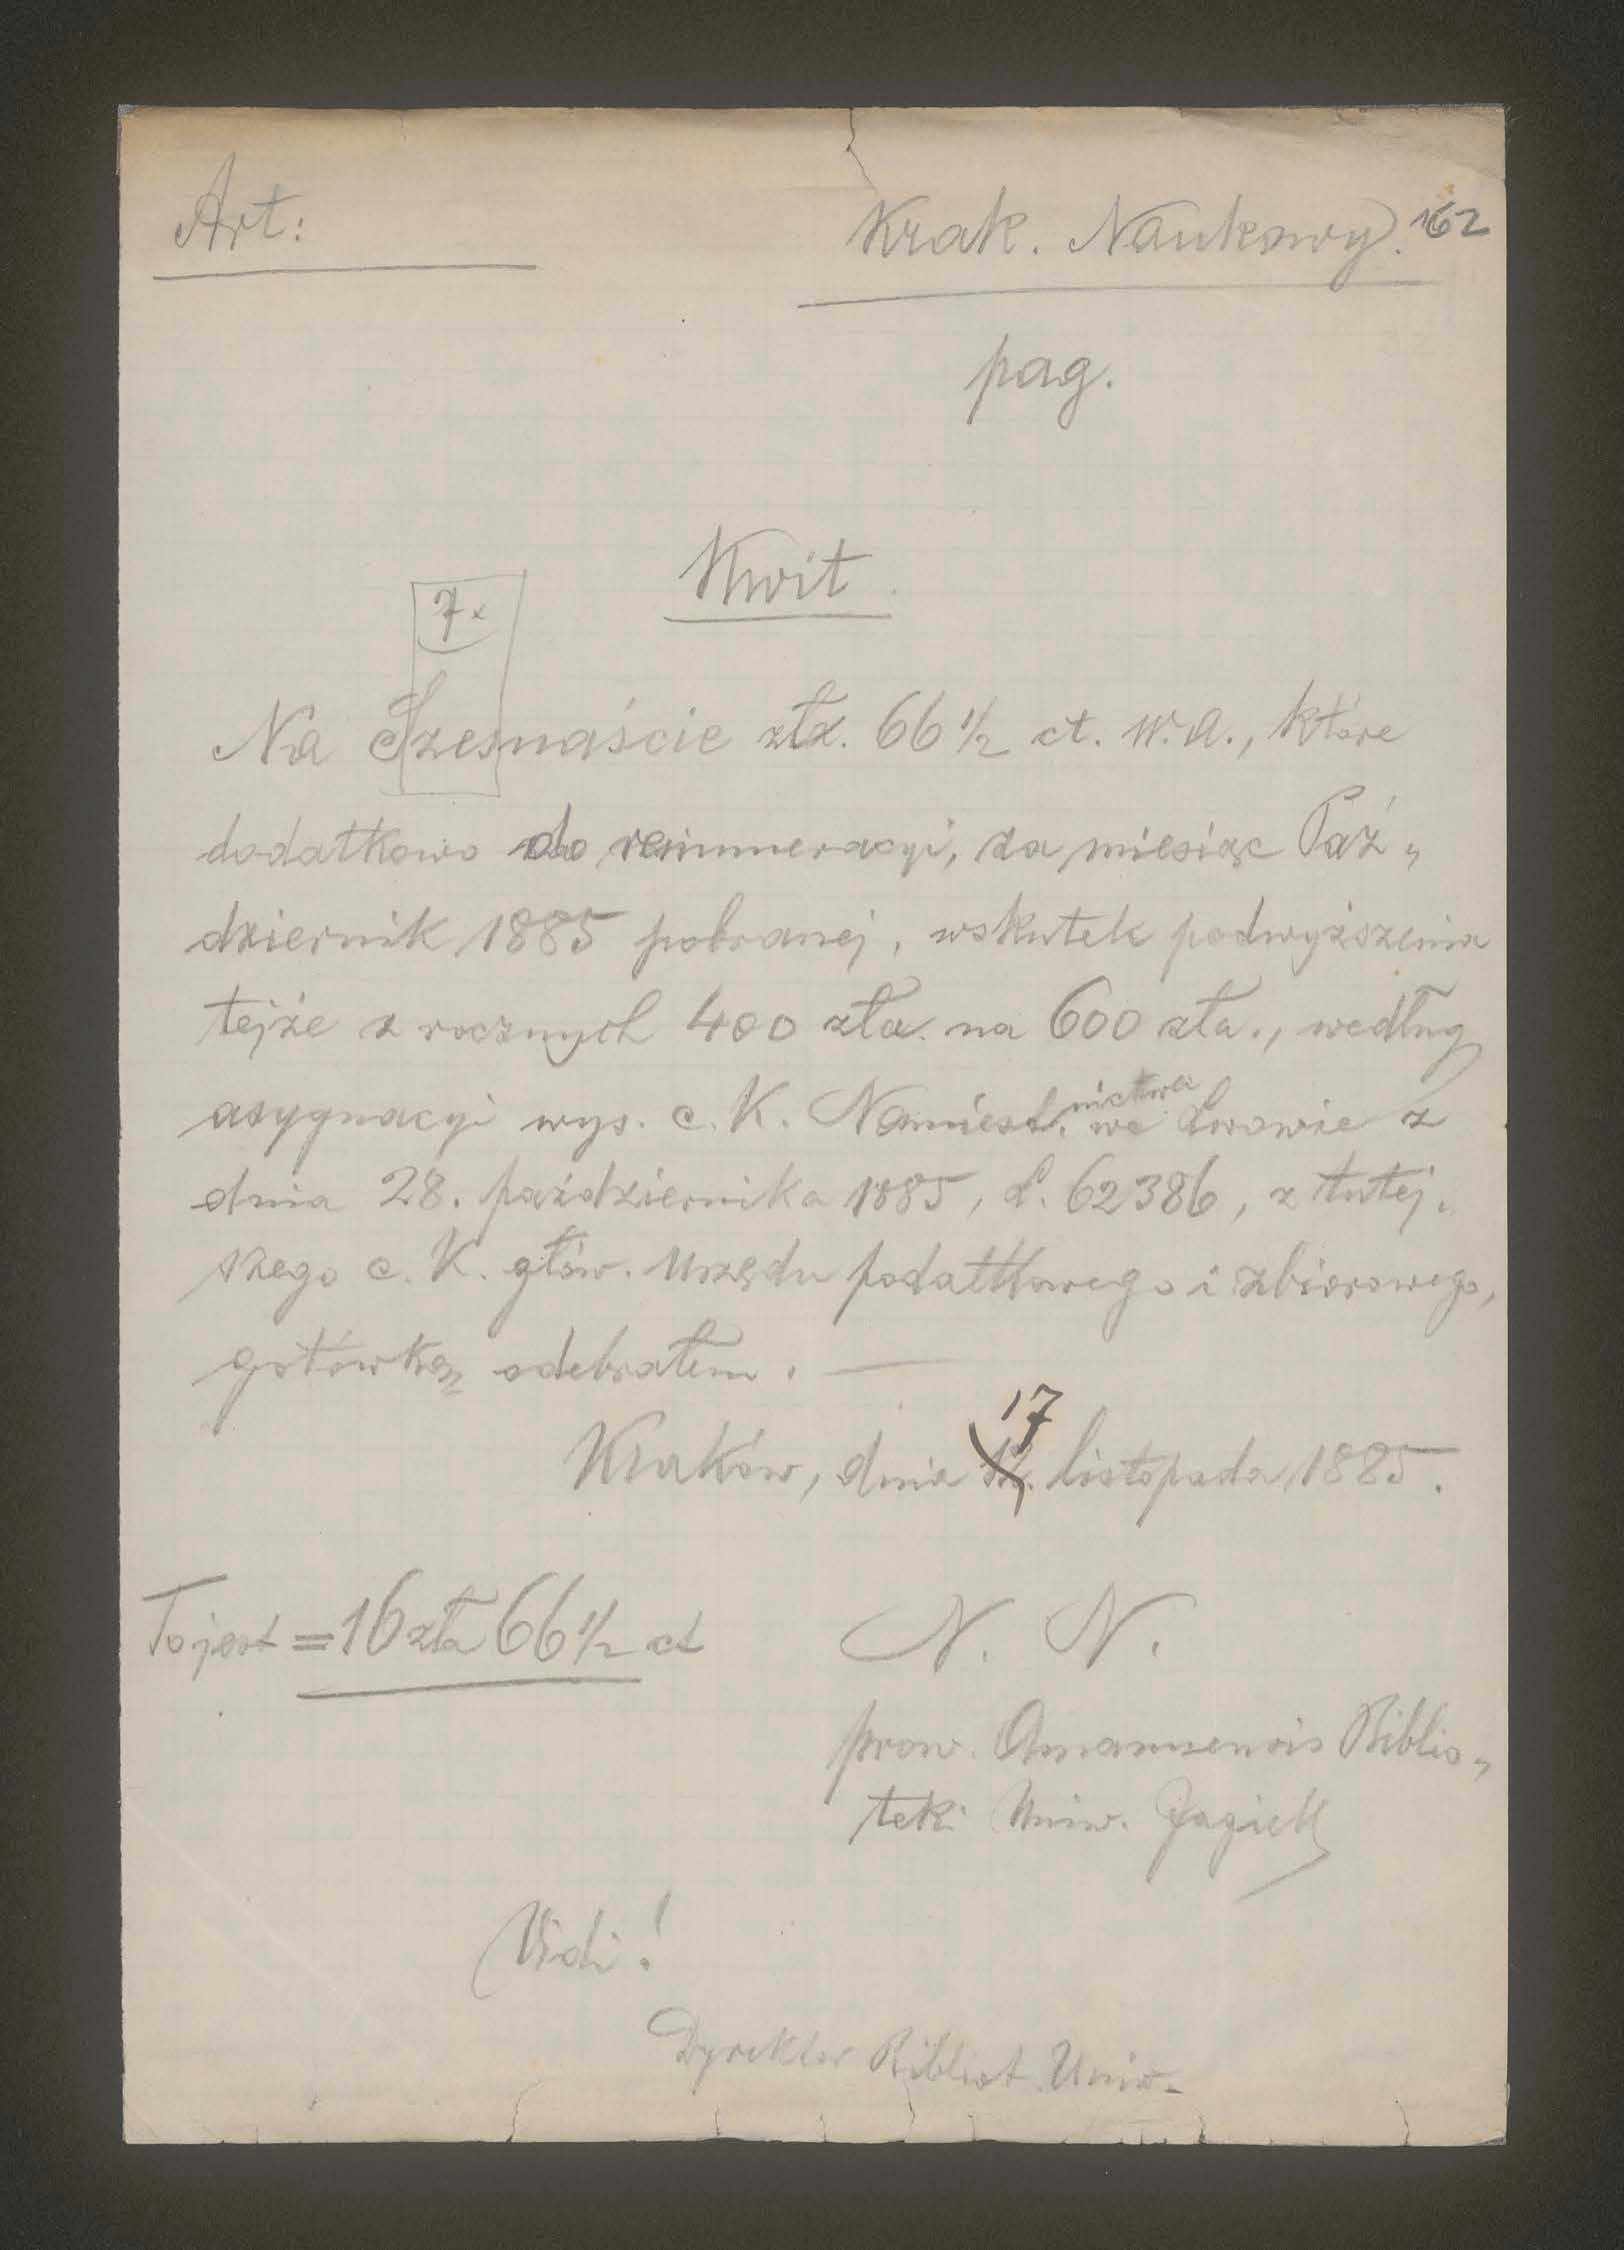 Art:
Krak. Naukowy. 162
pag.
Kwit
7 x
Na Szesnaście zła. 66 1/2 ct. w. a., które
dodatkowo do remuneracyi, za miesiąc Paź„
dziernik 1885 pobranej, wskutek podwyższenia
tejże z rocznych 400 zła. na 600 zła., według
asygnacyi wys. c. K. Namiest.nictwa we Lwowie z
dnia 28. października 1885, L. 62386, z tutej.
szego c. K. głów. Urzędu podatkowego i zbiorowego,
gotówką odebrałem. —
17
Kraków, dnia listopada 1885.
To jest = 16 zła 66 1/2 ct
N. N.
prow. Amanuensis Biblio„
teki Uniw. Jagiell
Vidi!
Dyrektor Bibliot. Uniw.